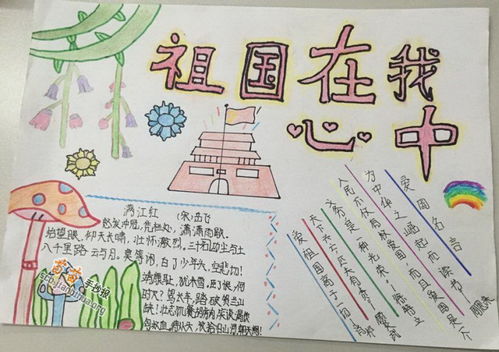 祖国在我
心中
满江红 (宋·岳飞)
怒发冲冠,凭栏处、潇潇雨歇。
抬望眼、仰天长啸,壮怀激烈。三十功名尘与土,
八千里路云与月。莫等闲、白了少年头,空悲切!
靖康耻,犹未雪。臣子恨,何
时灭?驾长车、踏破贺兰山
缺!壮志饥餐胡虏肉,笑谈渴饮
匈奴血。待从头、收拾旧山河,朝天阙!
爱国名言
为中华之崛起而读书 周恩来
人民不仅有权爱国,而且爱国是个
义务,是一种光荣。 徐特立
天下兴亡匹夫有责。 顾炎武
爱祖国高于一切 肖邦
手抄报